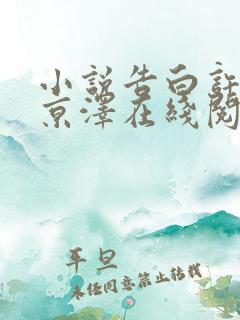 小说告白许
京泽在线阅
平旦
未经同意禁止转载